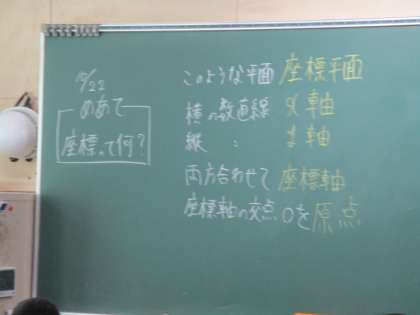 10/22
めあて
座標って何?
このような平面 座標平面
横の数直線 x軸
縦 : y軸
両方合わせて 座標軸
座標軸の交点 Oを原点